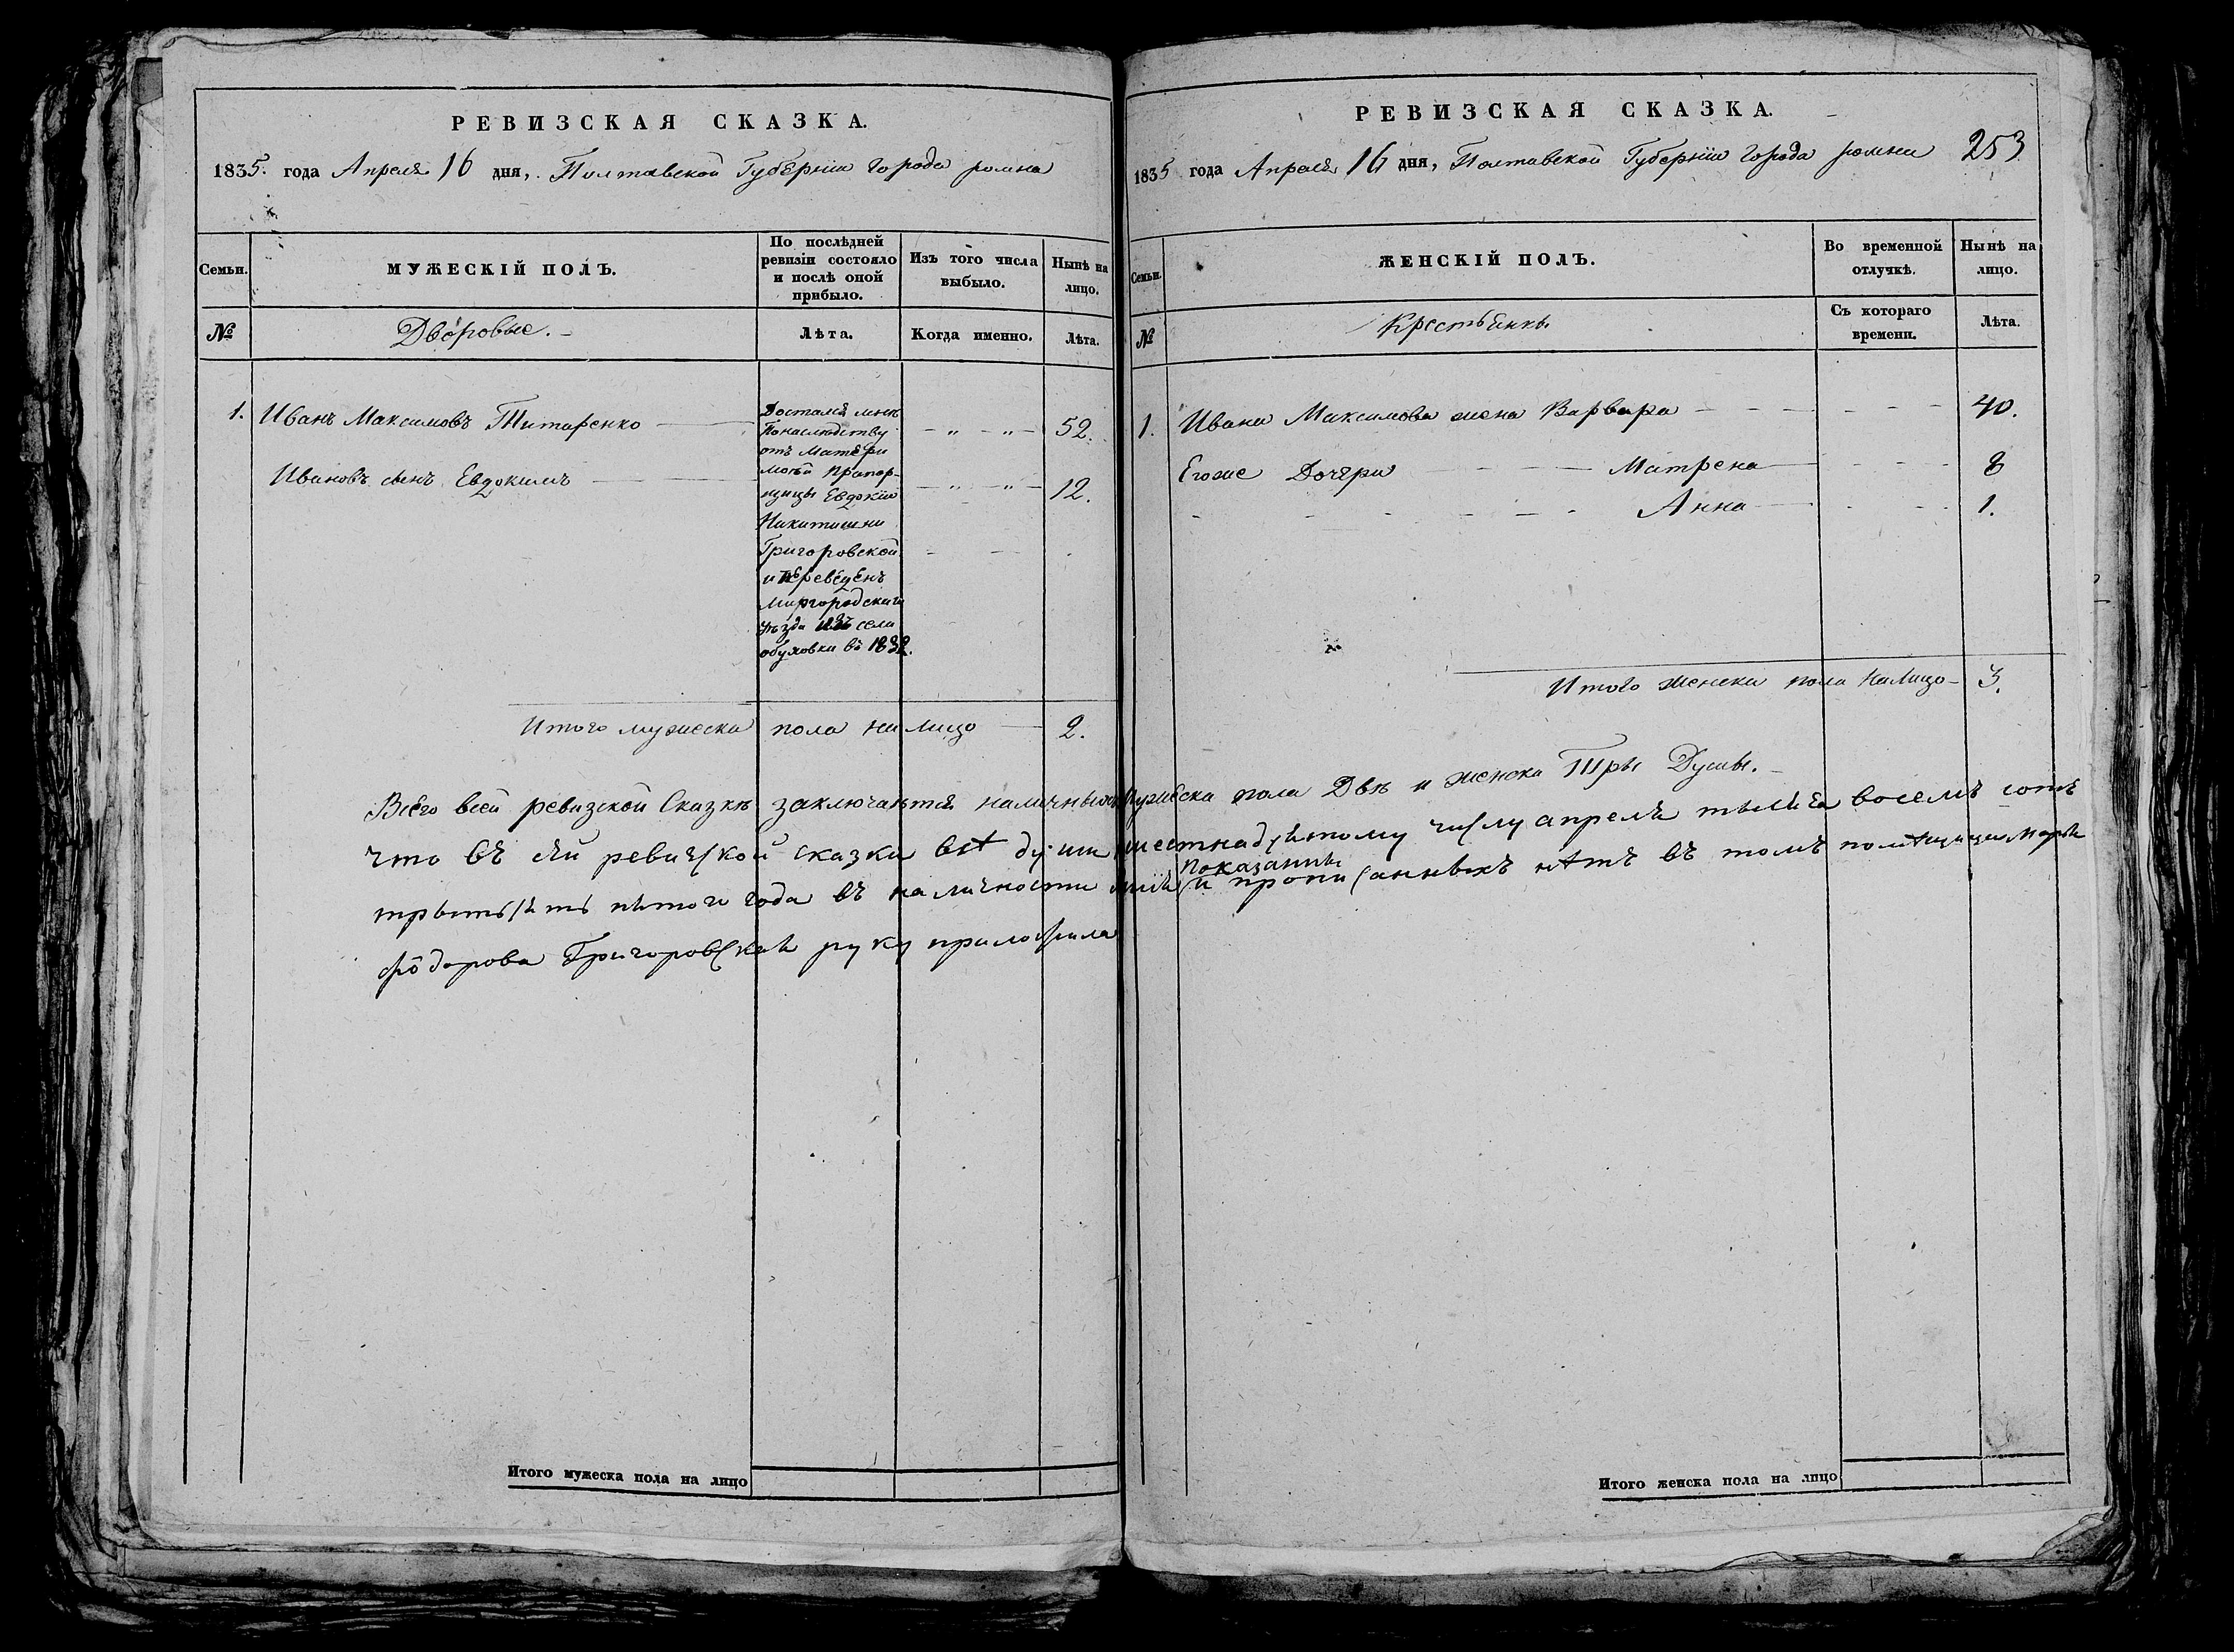 РЕВИЗСКАЯ СКАЗКА.
1835. года Апреля 16 дня, Полтавской Губерніи города ромна
Семьи.
МУЖЕСКІЙ ПОЛЪ.
По послѣдней
ревизіи состояло
и послѣ оной
прибыло.
Изъ того числа
выбыло.
Нынѣ на
лицо.
№
Дворовые.
Лѣта.
Когда именно.
Лѣта.
1. Иванъ Максимовъ Титаренко
52.
Ивановъ сынъ Евдокимъ
12.
Достался мнѣ
Понаслѣдству
отъ Матери
моей Прапор-
щицы Евдокіи
Никитишни
Григоровской
и переведенъ
Миргородскаго
уѣзда изъ села
обуховки въ 1832.
Итого мужеска пола на лицо 2.
РЕВИЗСКАЯ СКАЗКА.
1835 года Апреля 16 дня, Полтавской Губерніи города ромни 253
Семьи.
ЖЕНСКІЙ ПОЛЪ.
Во временной
отлучкѣ.
Нынѣ на
лицо.
№
Крестьянкы
Съ котораго
времени.
Лѣта.
1. Ивана Максимова жена Варвара 40.
Егоже Дочери Матрена 8
Анна 1.
Итого женска пола налицо 3.
Всего всей ревизской Сказкѣ заключается наличныхъ Мужеска пола Двѣ и женска Три Душы.
что въ сей ревизской сказки всѣ души шестнадцятому числу апреля тысяча восемъ сотъ
показанны
трытцять пятого года въ наличности и прописанныхъ нѣтъ въ томъ помѣщица Марья
фіодорова Григоровская руку приложила
Итого мужеска пола на лицо
Итого женска пола на лицо